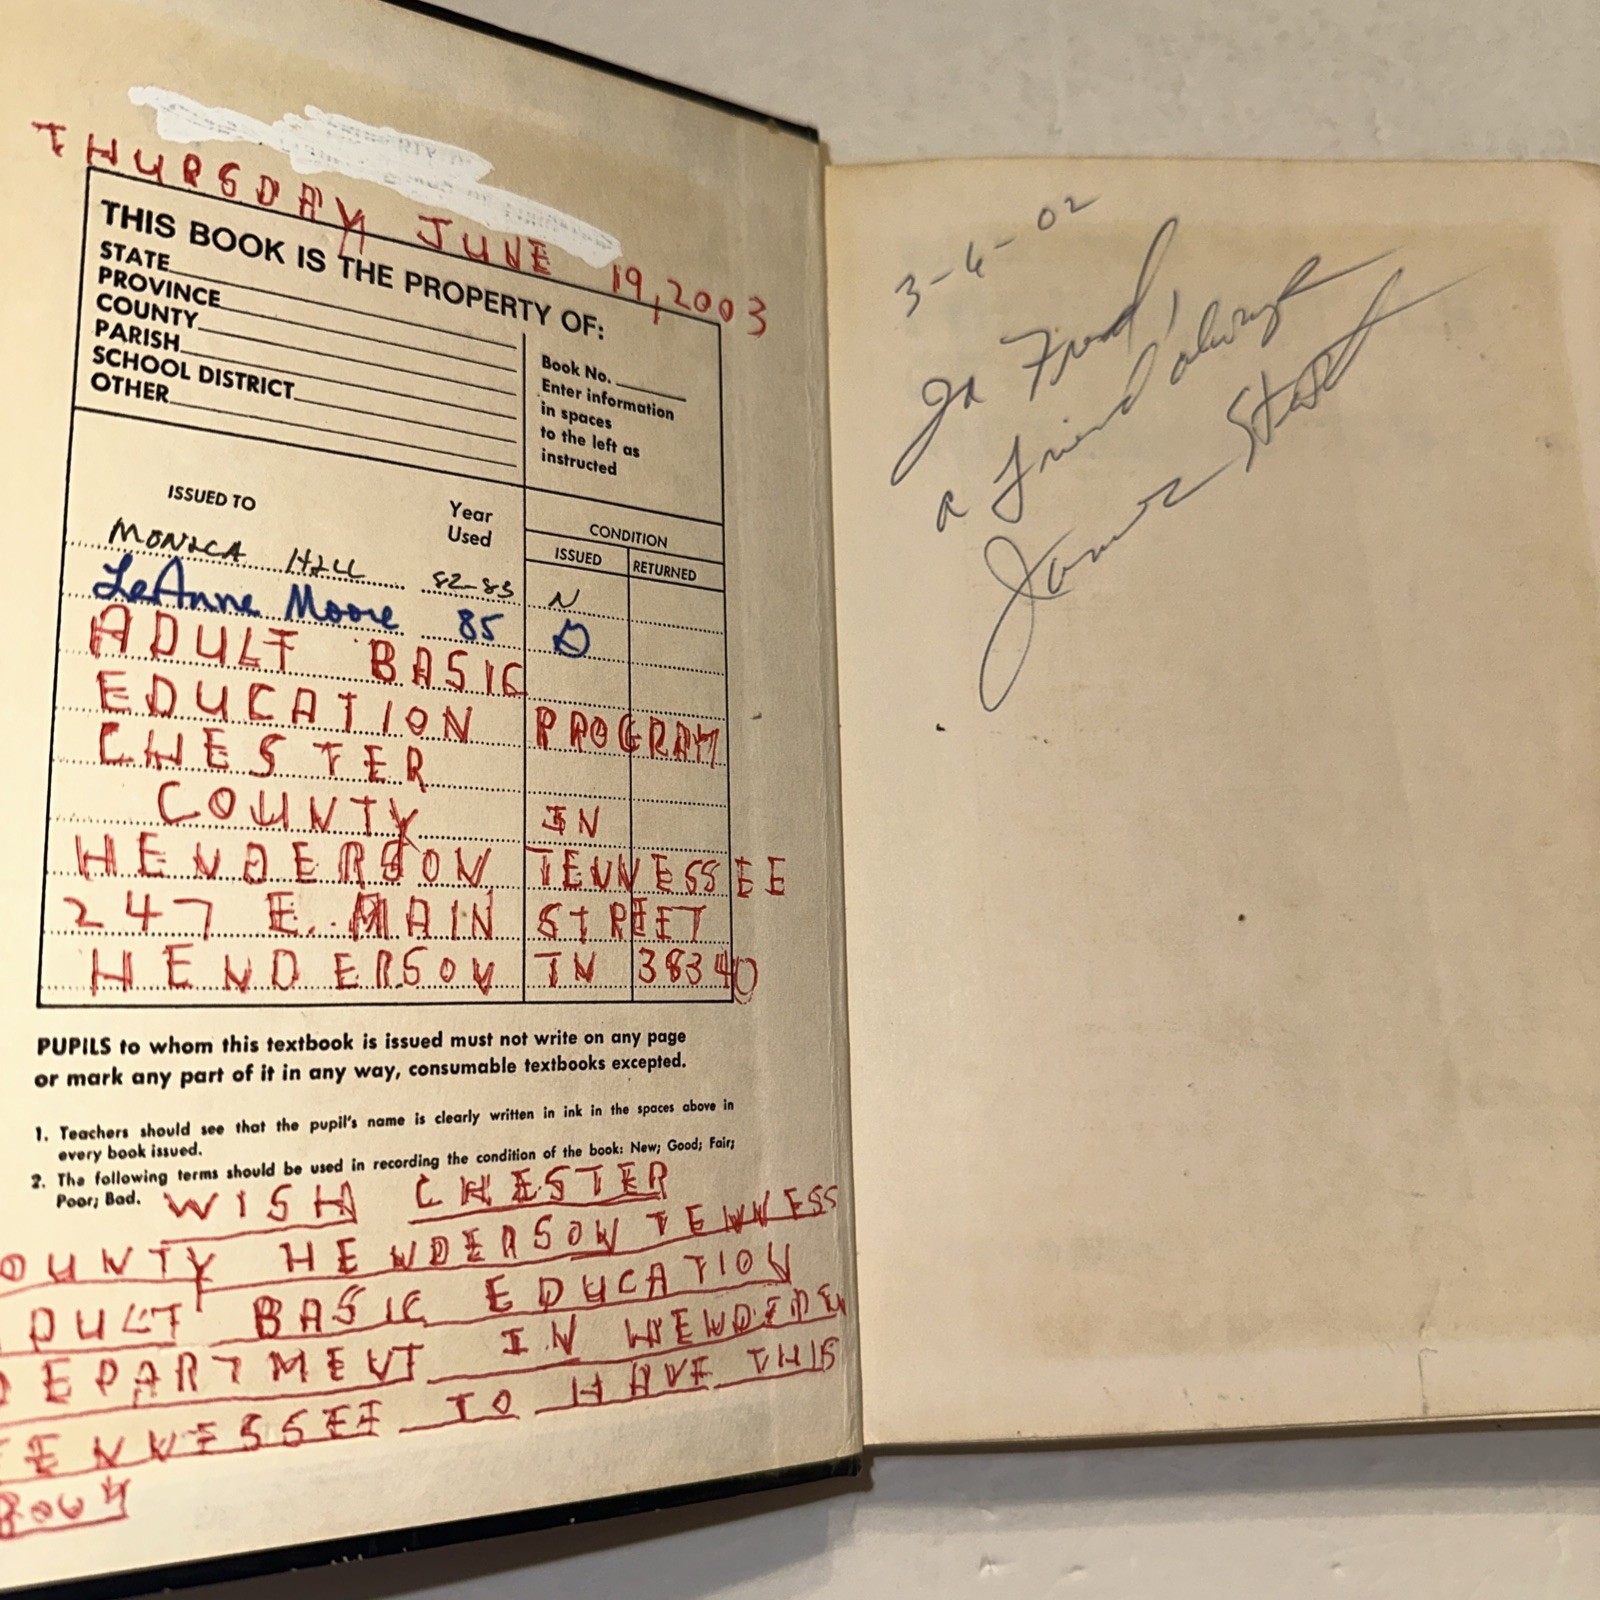 THURSDAY JUNE 19, 2003
THIS BOOK IS THE PROPERTY OF:
STATE
PROVINCE
COUNTY
PARISH
SCHOOL DISTRICT
OTHER
Book No.
Enter information
in spaces
to the left as
instructed
ISSUED TO
Year
Used
CONDITION
ISSUED
RETURNED
MONICA HILL 82-83 N
LeAnne Moore 85 G
ADULT BASIC
EDUCATION PROGRAM
CHESTER
COUNTY IN
HENDERSON TENNESSEE
247 E. MAIN STREET
HENDERSON TN 38340
PUPILS to whom this textbook is issued must not write on any page
or mark any part of it in any way, consumable textbooks excepted.
1. Teachers should see that the pupil's name is clearly written in ink in the spaces above in
every book issued.
2. The following terms should be used in recording the condition of the book: New; Good; Fair;
Poor; Bad.
WISH CHESTER
OUNTY HENDERSON TENNESS
DULT BASIC EDUCATION
DEPARTMENT IN
ENNESSEE TO HAVE THIS
3-6-02
To Friend,
a friend always
James